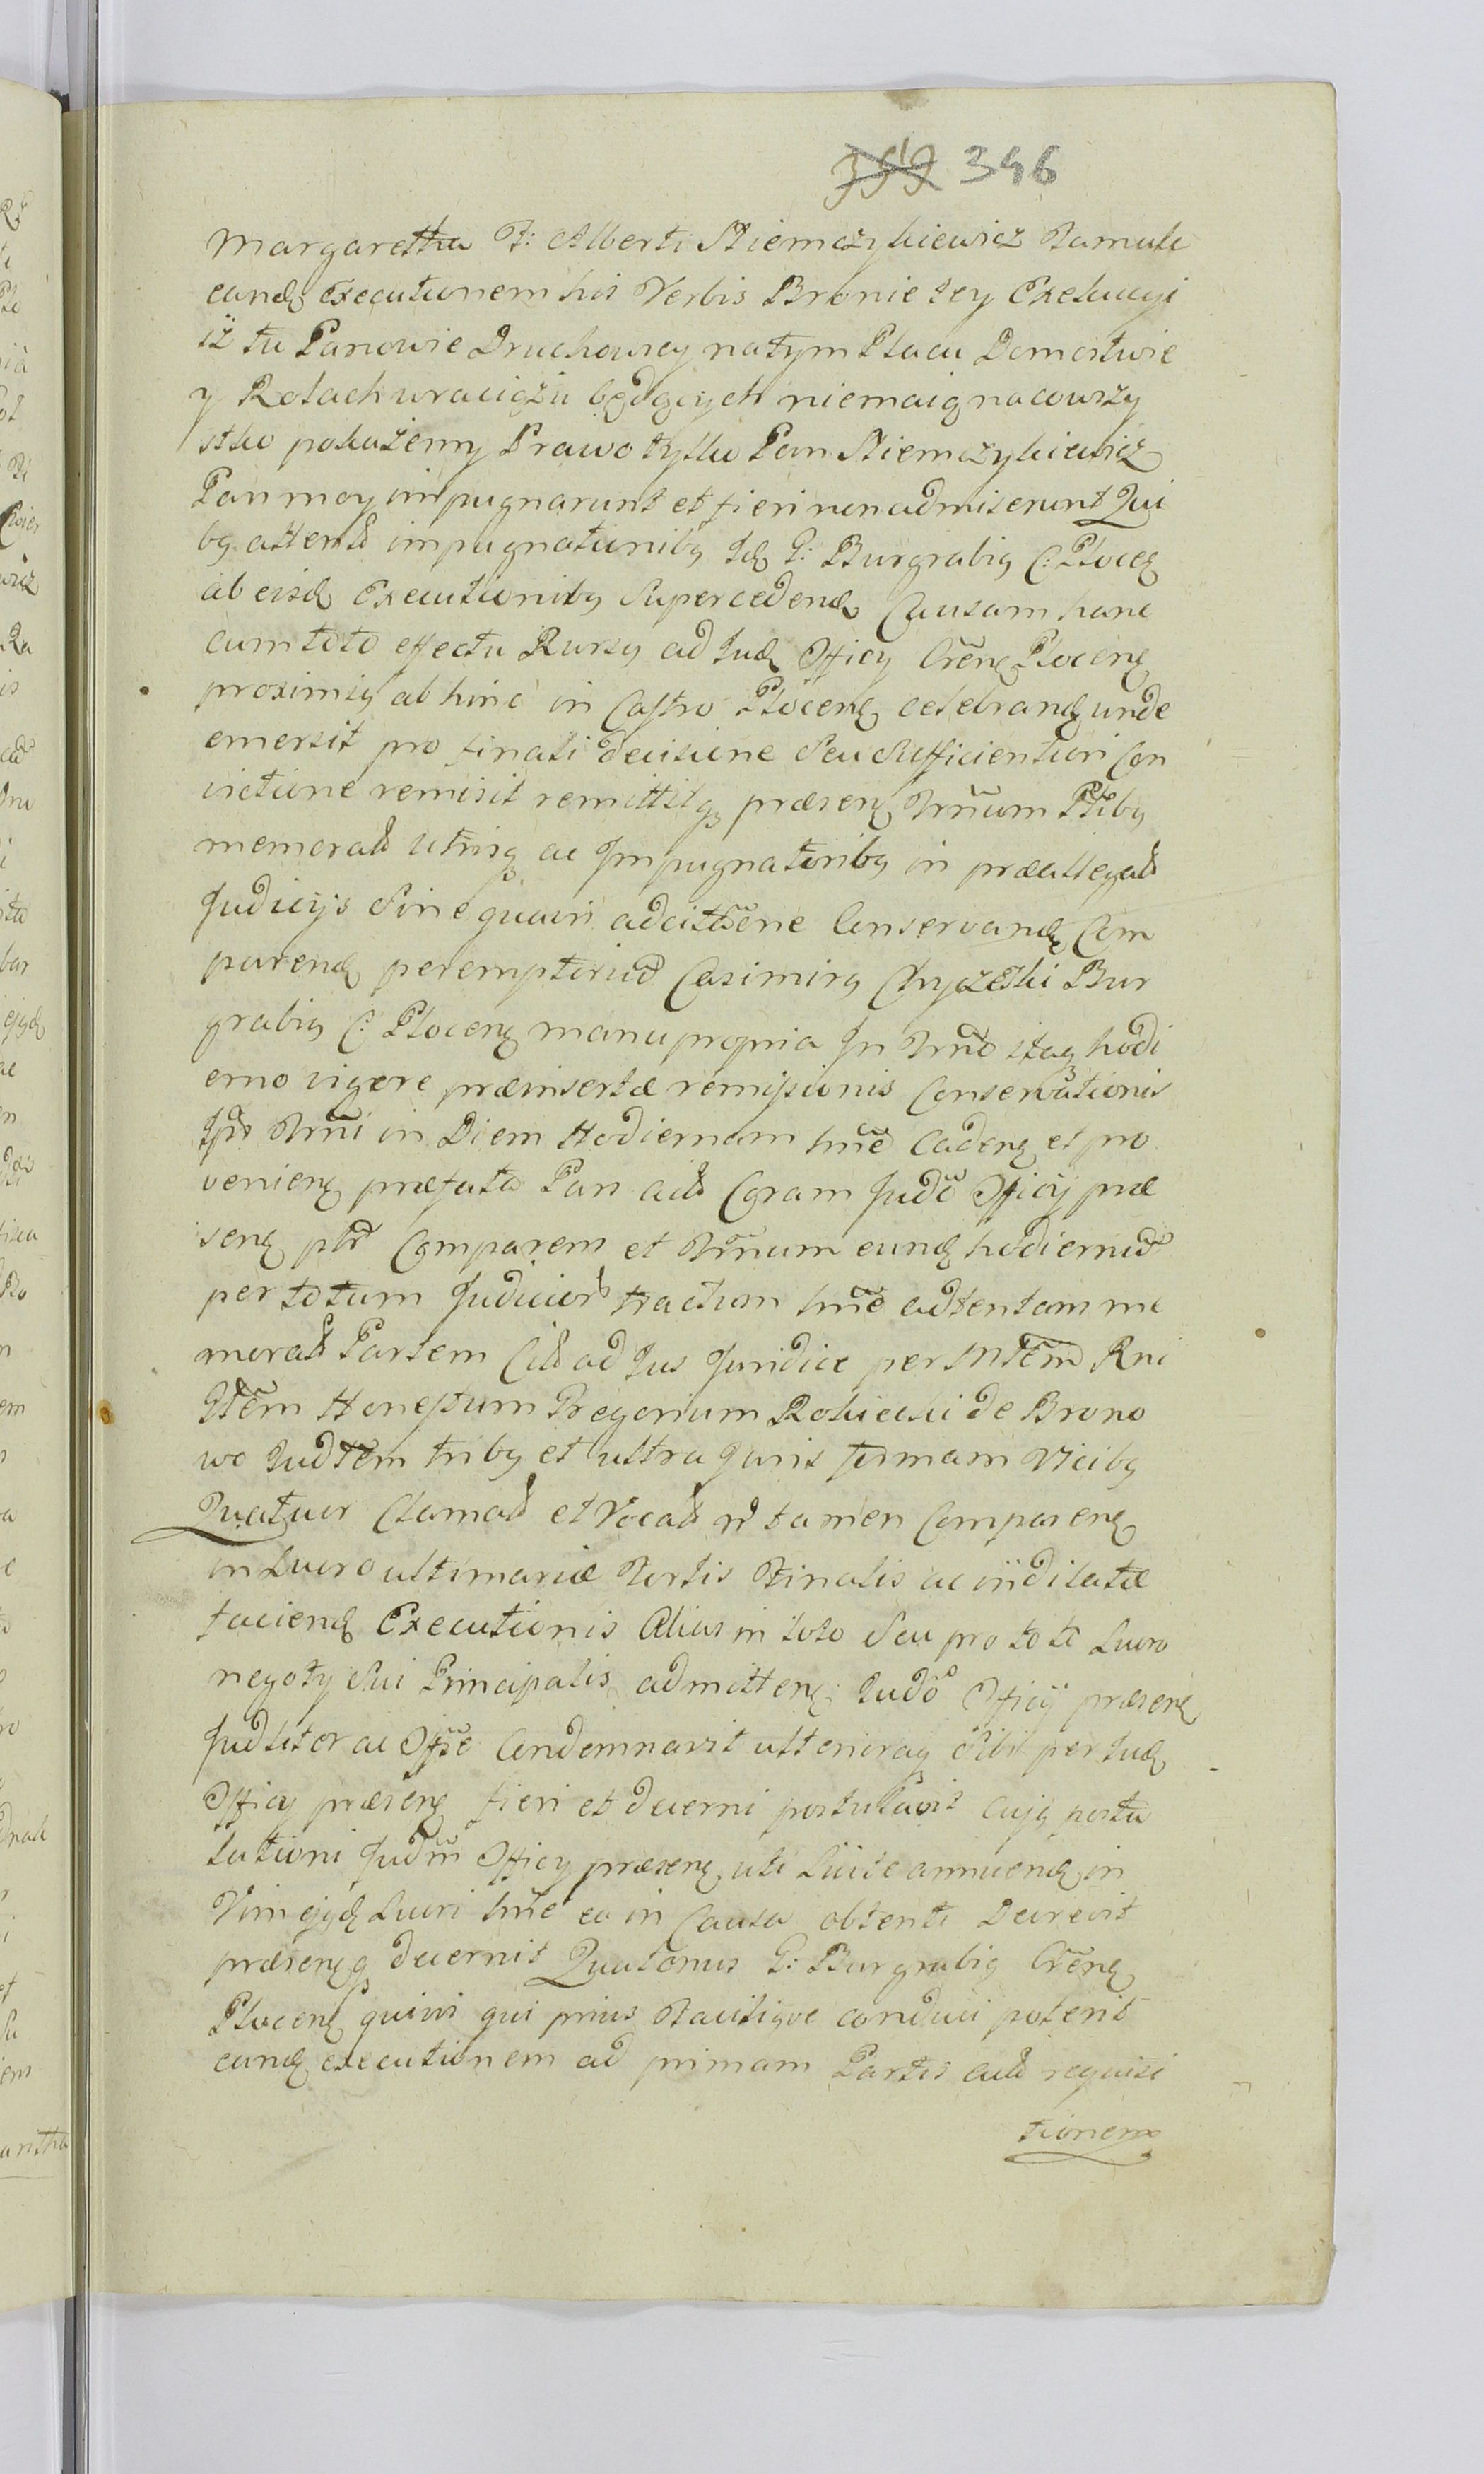 399 396
Margaretha F: Alberti Niemczykiewicz Famuli
eand Executionem his Verbis Bronie tey Exekucyi
iż tu Panowie Druchowscy na tym Placu Domostwie
y Rolach w raciążu będących niemaią na cowszy
stko pokażemy Prawo tylko Pan Niemczykiewicz
Pan moy impugnarunt et fieri non admiserunt Qui
bq attentis impugnationibq Id G: Burgrabiq C: Plocen
ab eisd Executionibq Supercedend Causam hanc
cum toto effectu Rursq ad Jud Officy Crêns Plocens
proximiq ab hinc in Castro Plocens celebrand unde
emersit pro finali decisione Seu Sufficientiori Con
victione remisit remittitq præsens Trnũm Ptibq
memoratis Utrisq ac Impugnatoribq in præallegatis
Judicijs Sine quavi adcitãone Conservand Com
parend peremptorium Casimirq Chyczewski Bur
grabiq C: Plocens manu propria In Trno itaq hodi
erno vigore præinsertæ remissionis Conservationis
Ipse Trni in Diem Hodiernam hnc Cadens et pro
veniens præfata Pars actis Coram Judo Officij præ
sens ptr Comparens et Trnum eund hodiernum
per totum Judiciorum tractum hnc adtentam me
moratam Partem Citam ad Jus Juridice per Mtem Rni
Jtem Honestum Gregorium Rokicki de Brono
wo Judtem tribq et ultra Juris formam Vicibq
Quatuor Clamatam et Vocatam non tamen Comparens
in Lucro ultimariæ Sortis Finalis ac indilatæ
faciend Executionis Alias in toto Seu pro toto Lucro
negoty Sui Principalis admittens Judo Officij præsens
Judliter ac Offse Condemnavit ulteriraq Sibi per Jud
Officy præsens fieri et decerni postulavit cujq postu
lationi Judm Officy præsens uti Licite annuend in
Vim ejqd Lucri hnc ea in Causa obtenti Decrevit
præsensq decernit Quatenus G: Burgrabiq Crêns
Plocens quivi qui prius Facilique conduci poterit
eand executionem ad primam Partis actis requisi
tionem